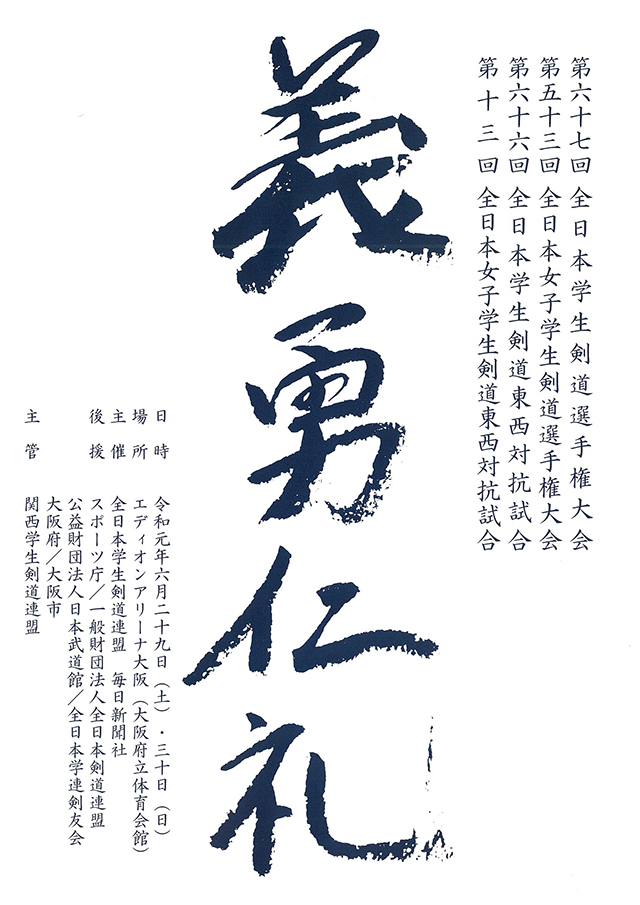 第六十七回 全日本学生剣道選手権大会
第五十三回 全日本女子学生剣道選手権大会
第六十六回 全日本学生剣道東西対抗試合
第十三回 全日本女子学生剣道東西対抗試合
義勇仁礼
日時 令和元年六月二十九日（土）・三十日（日）
場所 エディオンアリーナ大阪（大阪府立体育会館）
主催 全日本学生剣道連盟 毎日新聞社
後援 スポーツ庁／一般財団法人全日本剣道連盟
公益財団法人日本武道館／全日本学連剣友会
大阪府／大阪市
主管 関西学生剣道連盟